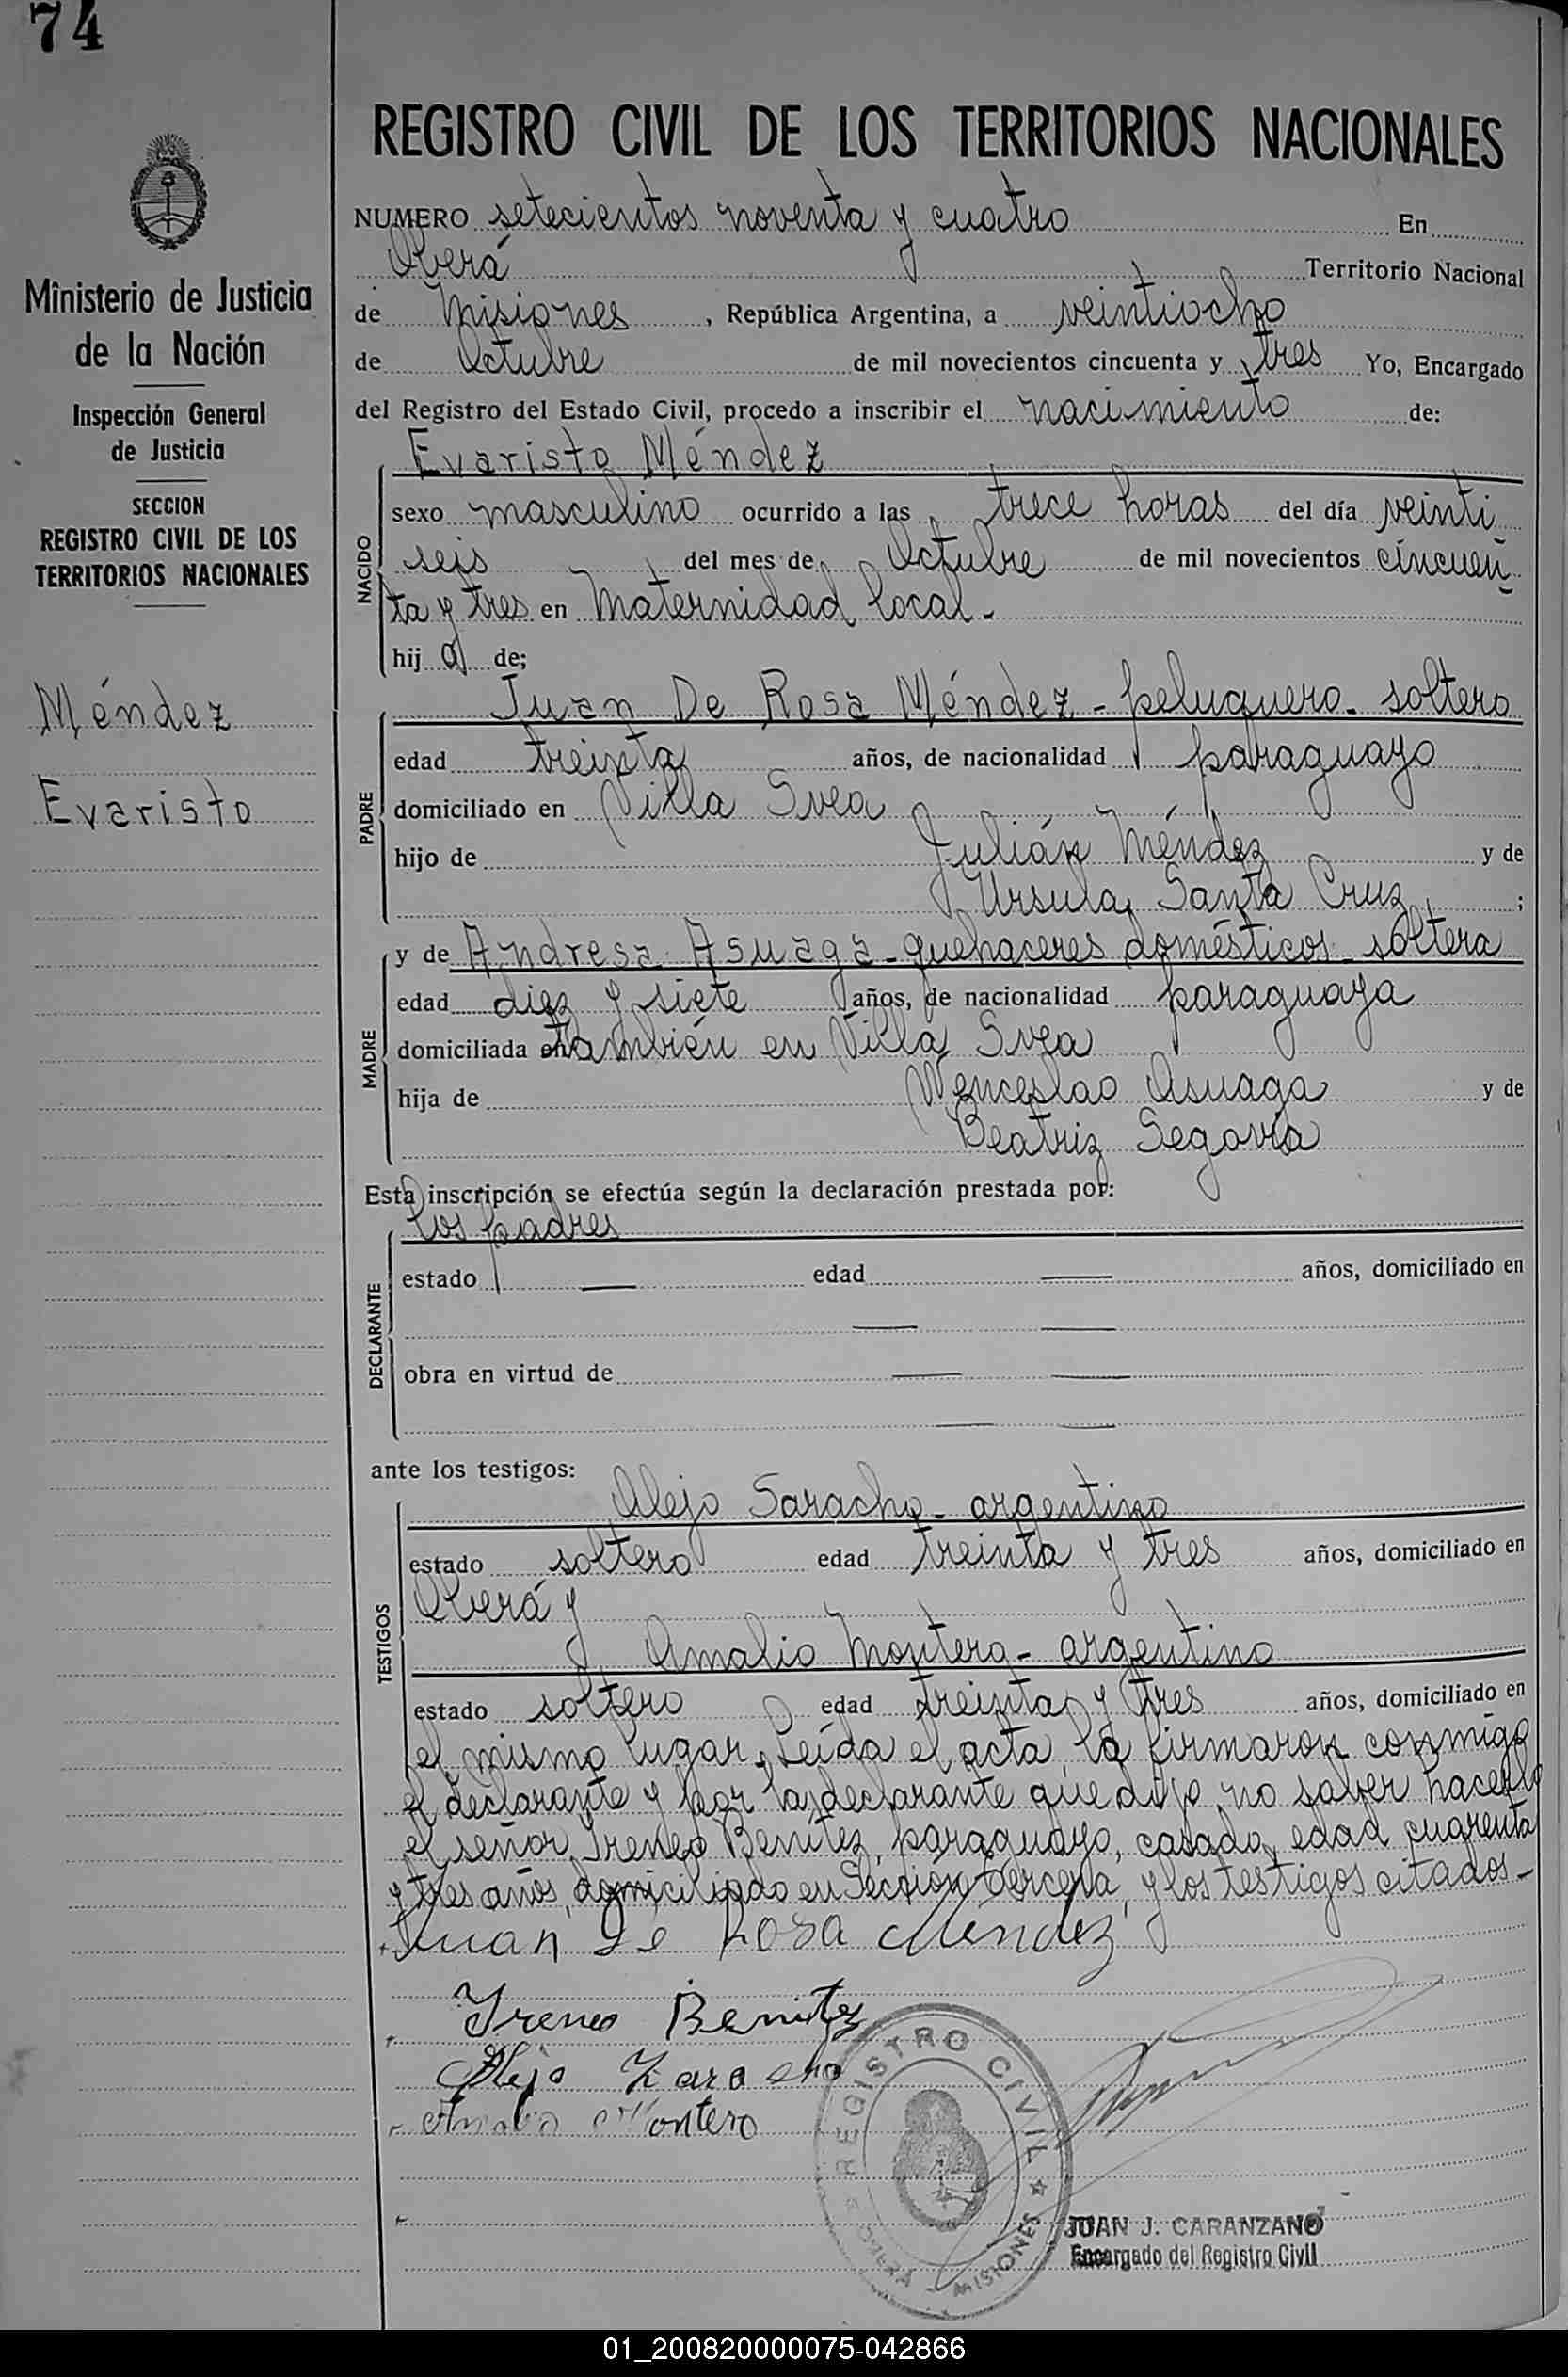 74
REGISTRO CIVIL DE LOS TERRITORIOS NACIONALES
Ministerio de Justicia
de la Nación
Inspección General
de Justicia
SECCION
REGISTRO CIVIL DE LOS
TERRITORIOS NACIONALES
Méndez
Evaristo
NUMERO setecientos noventa y cuatro En
Oberá Territorio Nacional
de Misiones, República Argentina, a veintiocho
de Octubre de mil novecientos cincuenta y tres Yo, Encargado
del Registro del Estado Civil, procedo a inscribir el nacimiento de:
Evaristo Méndez
NACIDO
sexo masculino ocurrido a las trece horas del día veinti
seis del mes de Octubre de mil novecientos cincuen
ta y tres en Maternidad local.-
hijo de;
Juan De Rosa Méndez - peluquero - soltero
PADRE
edad treinta años, de nacionalidad paraguayo
domiciliado en Villa Svea
hijo de Julián Méndez y de
Ursula Santa Cruz ;
MADRE
y de Andresa Asuaga - quehaceres domésticos - soltera
edad diez y siete años, de nacionalidad paraguaya
domiciliada en también en Villa Svea
hija de Wenceslao Asuaga y de
Beatriz Segovia
Esta inscripción se efectúa según la declaración prestada por:
los padres
DECLARANTE
estado — edad — años, domiciliado en
— —
obra en virtud de — —
— —
ante los testigos:
Alejo Saracho - argentino
TESTIGOS
estado soltero edad treinta y tres años, domiciliado en
Oberá y
Amalio Montero - argentino
estado soltero edad treinta y tres años, domiciliado en
el mismo lugar. Leída el acta, la firmaron conmigo
el declarante y por la declarante que dijo no saber hacerlo
el señor Ireneo Benítez, paraguayo, casado, edad cuarenta
y tres años, domiciliado en Sección tercera, y los testigos citados -
Juan De Rosa Méndez
Ireneo Benitez
Alejo Zaracho
Amalio Montero
REGISTRO CIVIL
OBERA - MISIONES
JUAN J. CARANZANO
Encargado del Registro Civil
01_200820000075-042866